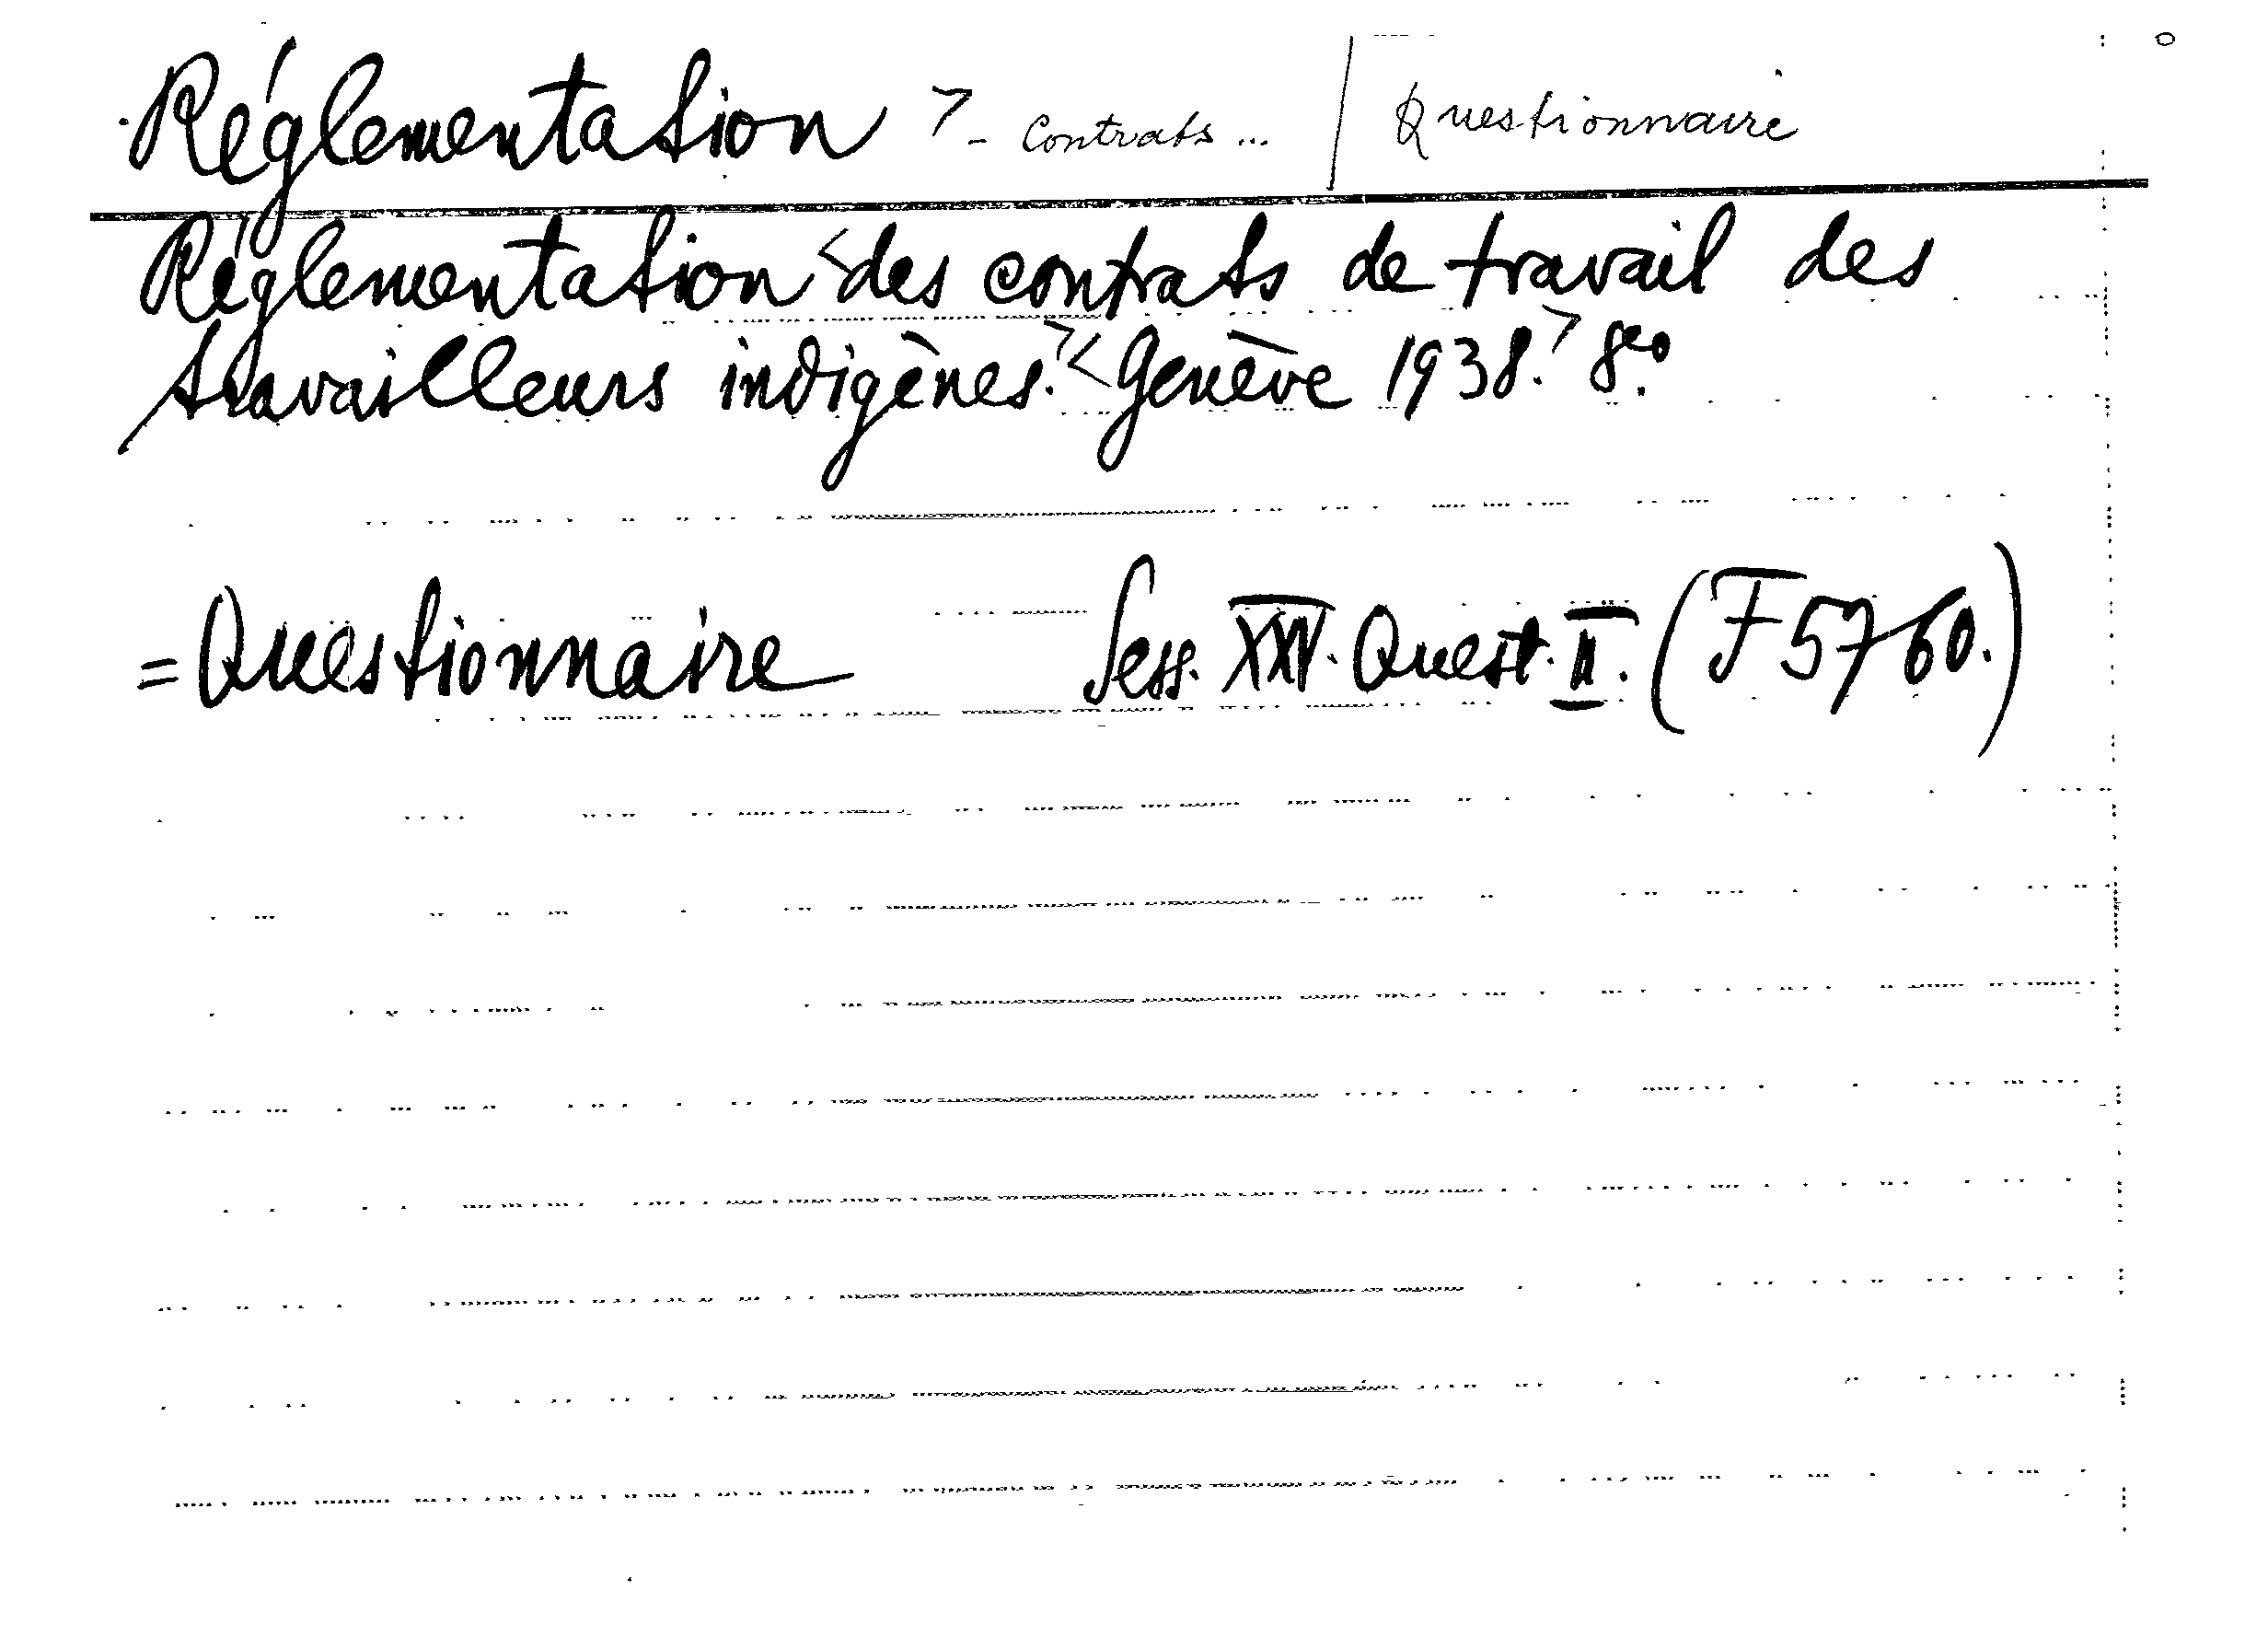 Réglementation > - Contrats ... / Questionnaire
Réglementation <des contrats de travail des
travailleurs indigènes.> <Genève 1938.> 8vo.
= Questionnaire Sess. XXV. Quest. II. (F 5760.)